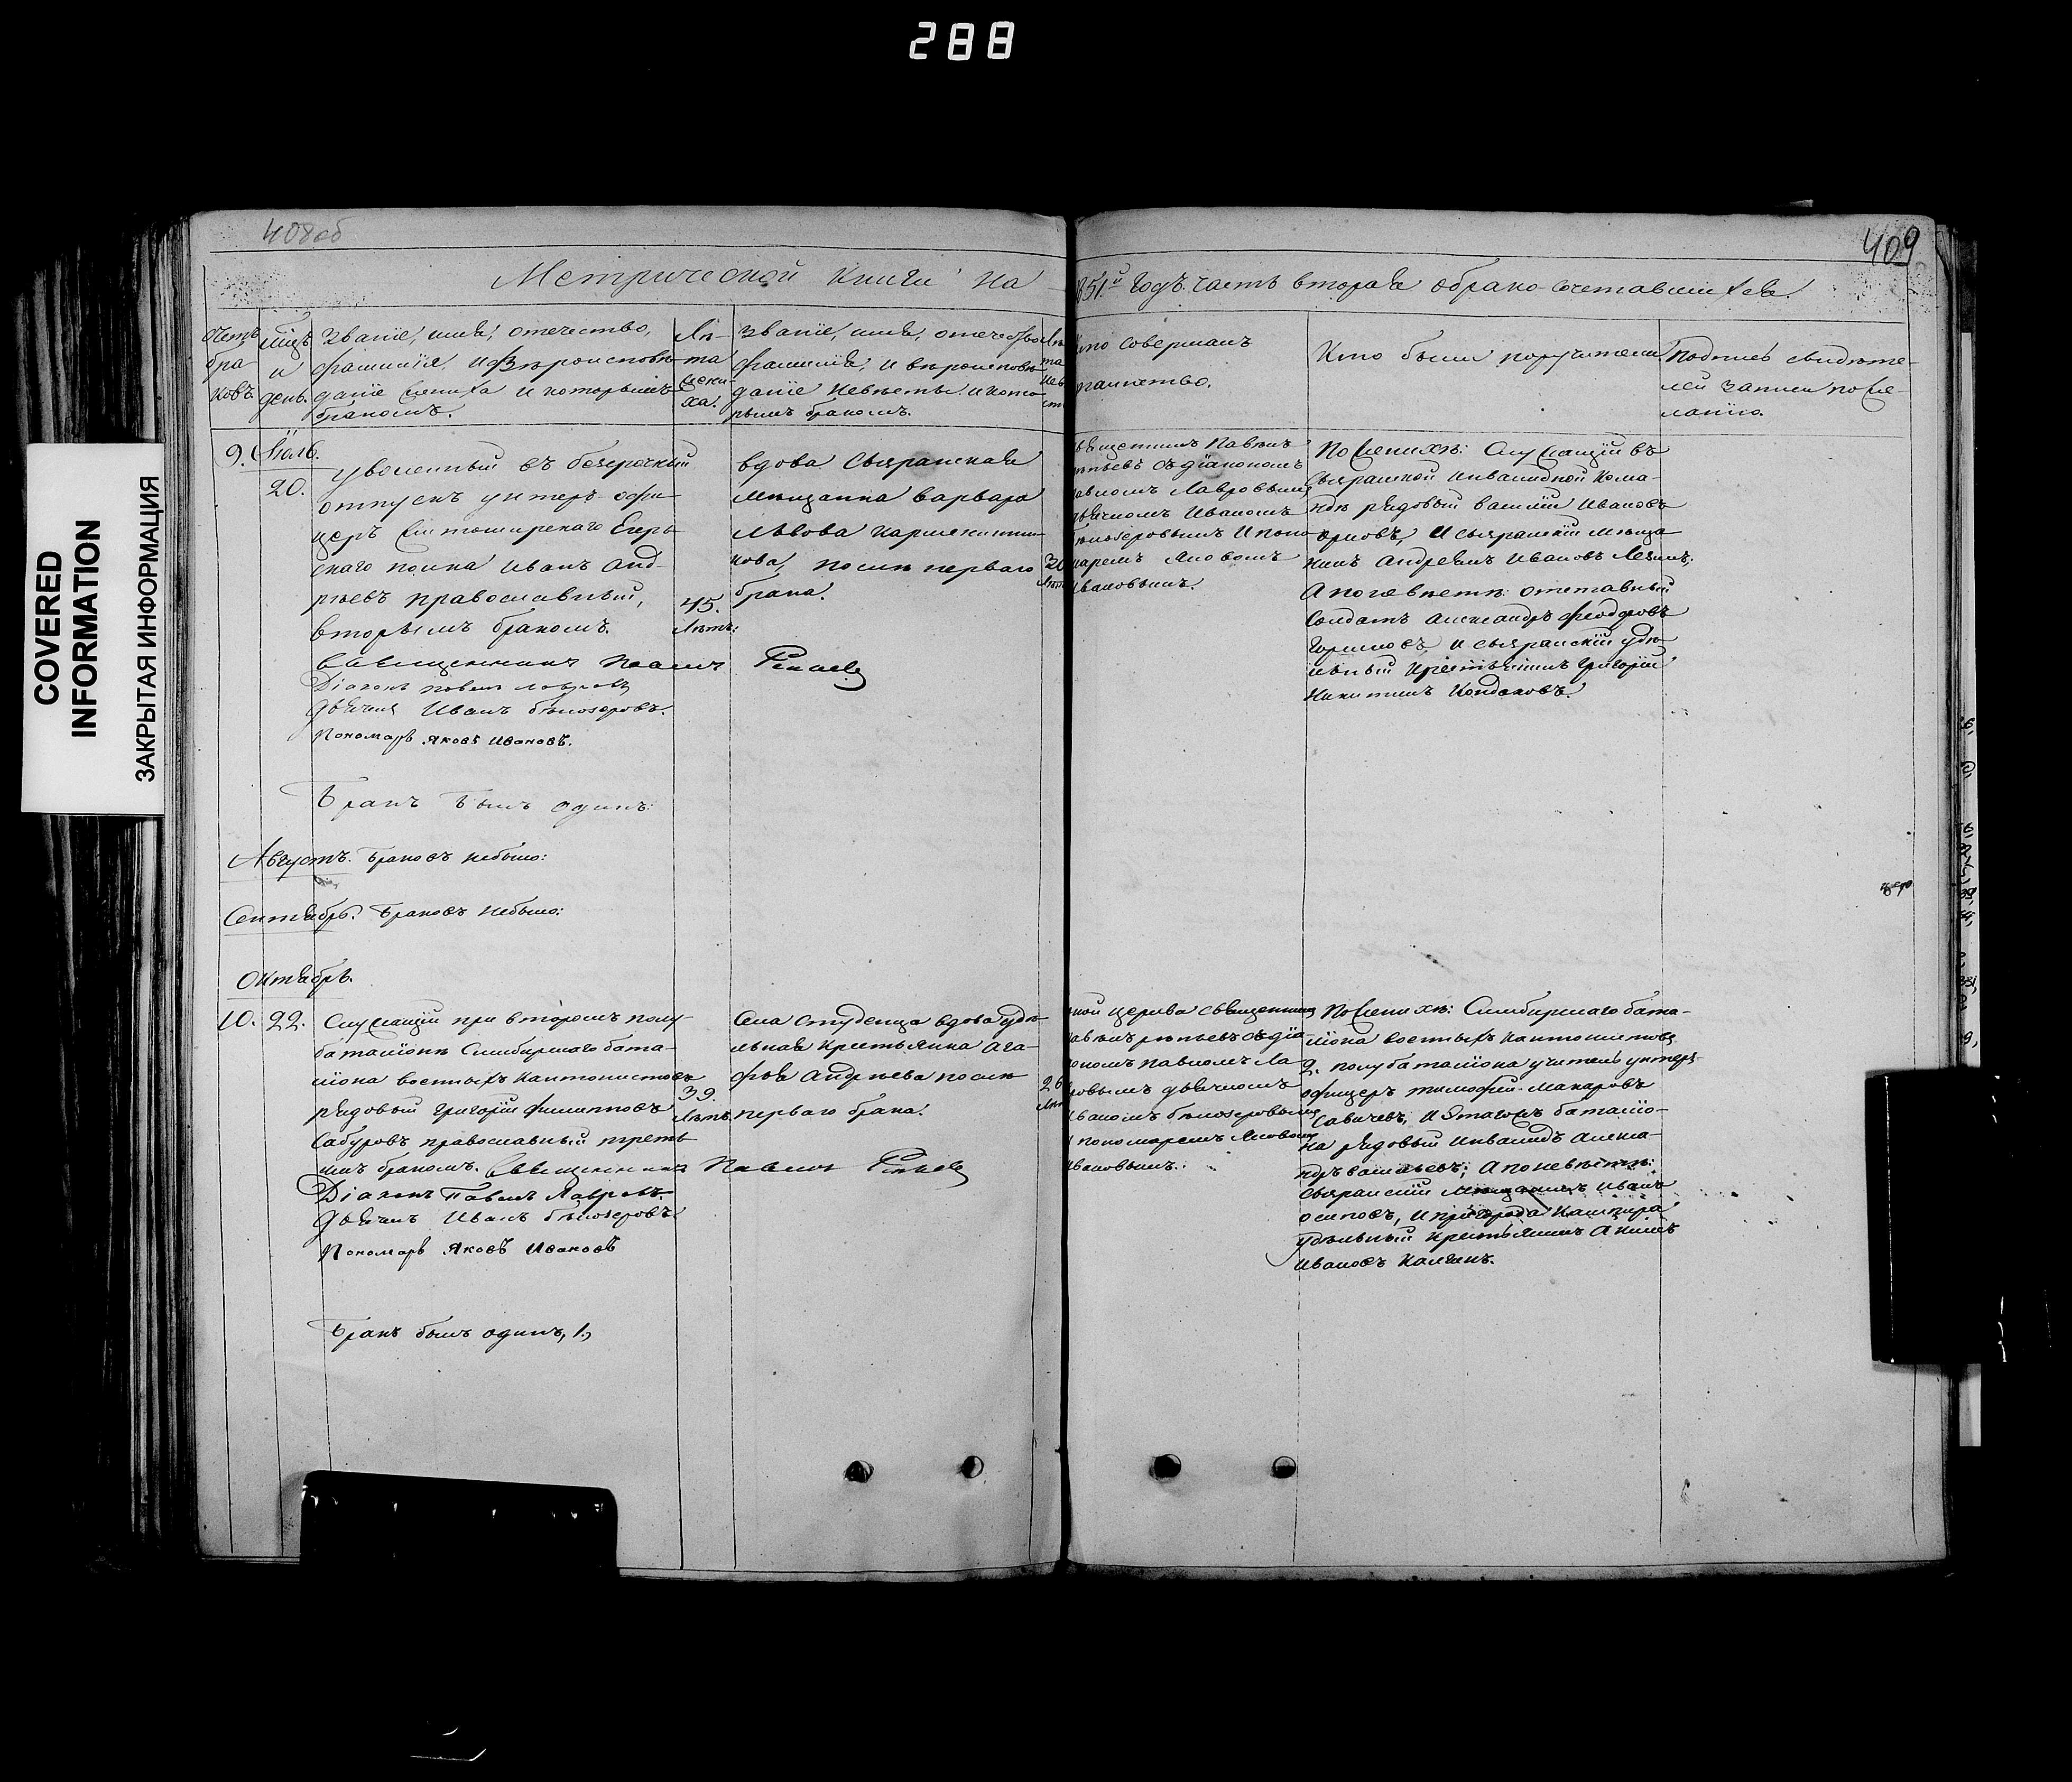 288
COVERED
INFORMATION
ЗАКРЫТАЯ ИНФОРМАЦИЯ
408 об
409
Метрической книги на 1851й годъ часть вторая обрако сочетавшихся.
Счетъ
бра
ковъ
мцъ
и
день.
Званіе, имя, отечество,
фамилія и вѣроисповѣ
даніе жениха и которымъ
бракомъ.
Лѣ-
та
жени-
ха.
Званіе, имя, отечество
фамилія, и вѣроисповѣ
даніе невѣсты и кото
рымъ бракомъ.
Лѣ
та
нев
Кто совершалъ
таинство.
Кто были поручители
Подпись свидѣте-
лей записи по же-
ланію.
9. Іюль.
20.
уволенный въ безсрочный
отпускъ унтеръ-офи
церъ Житомирскаго Егерь
скаго полка Иванъ Анд-
реевъ православный,
вторымъ бракомъ.
45.
Лѣтъ.
вдова Сызранская
мѣщанка Варвара
Львова
кова, послѣ перваго
брака.
30
священникъ Павелъ
съ діакономъ
Павломъ Лавровымъ
дьячкомъ Иваномъ
Бѣлозеровымъ и поно
маремъ Яковомъ
Ивановымъ.
По женихѣ: Служащій въ
Сызранской инвалидной кома-
ндѣ рядовый Василій Ивановъ
Орловъ, и сызранскій мѣща
нинъ Андреянъ Ивановъ
А по невѣстѣ: отставный
солдатъ Александръ Феодоровъ
и сызранскій удѣ
льный крестьянинъ Григорій
Никитинъ Кондаковъ.
Священникъ Павелъ
Діаконъ Павелъ Лавровъ
Дьячекъ Иванъ Бѣлозеровъ.
Пономарь Яковъ Ивановъ.
Бракъ былъ одинъ.
Августъ. Браковъ небыло:
Сентябрь. Браковъ небыло:
Октябрь.
10. 22.
Служащій при второмъ полу-
баталіонѣ Симбирскаго бата-
ліона военныхъ кантонистовъ
рядовый Григорій Филипповъ
Сабуровъ православный треть
имъ бракомъ. Священникъ Павелъ
39.
Лѣтъ
Села Студенца вдова удѣ-
льная крестьянка Ага-
фья Андреева послѣ
перваго брака.
26
церкви священникъ
съ діа-
кономъ Павломъ Ла
вровымъ дьячкомъ
Иваномъ Бѣлозеровымъ
и пономаремъ Яковомъ
Ивановымъ.
По женихѣ: Симбирскаго бата-
ліона военныхъ кантонистовъ
2. полубаталіона учитель унтеръ
офицеръ Тимофей Макаровъ
Савичевъ, и этагожъ баталіо-
на рядовый инвалидъ Алекса-
ндръ Васильевъ; А по невѣстѣ:
Сызранскій мѣщанинъ Иванъ
Осиповъ, и пригорода Кашпира
удѣльный крестьянинъ Акимъ
Ивановъ
Діаконъ Павелъ Лавровъ.
Дьячекъ Иванъ Бѣлозеровъ.
Пономарь Яковъ Ивановъ
Бракъ былъ одинъ, 1.